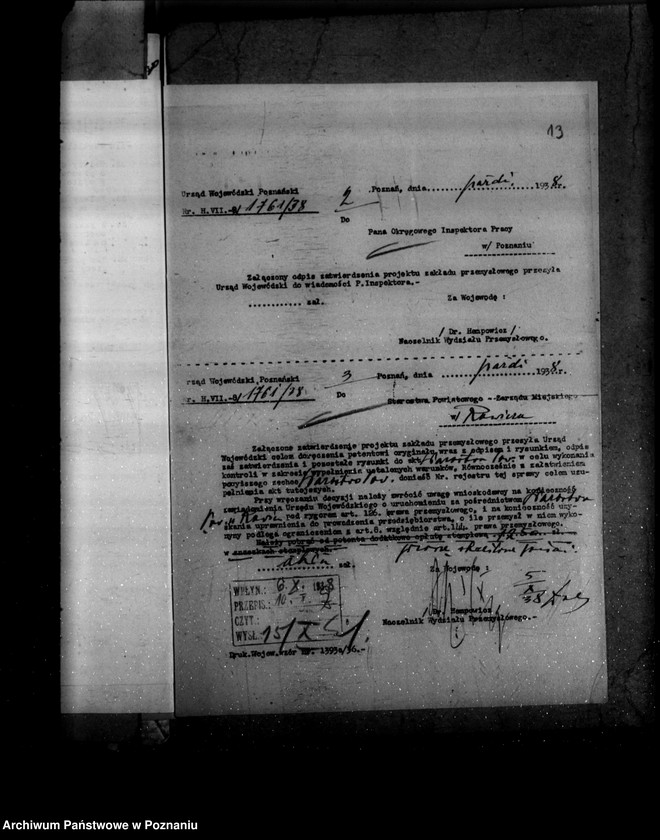 13
Urząd Wojewódzki Poznański
Nr. H.VII.- 1761/38
2
Poznań, dnia paźdz. 1938 r.
Do
Pana Okręgowego Inspektora Pracy
w/ Poznaniu
Załączony odpis zatwierdzenia projektu zakładu przemysłowego przesyła
Urząd Wojewódzki do wiadomości P.Inspektora.-
............ zał.
Za Wojewodę :
/ Dr. Hempowicz /
Naczelnik Wydziału Przemysłowego.
rząd Wojewódzki Poznański
r. H.VII.- 1761/38
3
Poznań, dnia paźdz. 1938 r.
Do
Starostwa Powiatowego - Zarządu Miejskiego
w
Załączone zatwierdzenie projektu zakładu przemysłowego przesyła Urząd
Wojewódzki celem doręczenia petentowi oryginału wraz z odpisem i rysunkiem, odpis
zaś zatwierdzenia i pozostałe rysunki do akt w celu wykonania
kontroli w zakresie wypełnienia ustalonych warunków, Równocześnie z załatwieniem
powyższego zechce donieść Nr. rejestru tej sprawy celem uzu-
pełnienia akt tutejszych.
Przy wręczaniu decyzji należy zwrócić uwagę wnioskodawcy na konieczność
zawiadomienia Urzędu Wojewódzkiego o uruchomieniu za pośrednictwem
pod rygorem art. 126. prawa przemysłowego, i na konieczność uzy-
skania uprawnienia do prowadzenia przedsiębiorstwa, o ile przemysł w nim wyko-
nywany podlega ograniczeniom z art.8. względnie art.144. prawa przemysłowego.
Należy pobrać od petenta dodatkową opłatę stemplową zł.
w znaczkach stemplowych.
zał.
Za Wojewodę :
WPŁYN.: 6. X. 1938
PRZEPIS.: 10. X.
CZYT.:
WYSŁ. 15/X
5
X
38
Dr. Hempowicz
Naczelnik Wydziału Przemysłowego.-
Druk.Wojew.wzór Nr. 1393a/36.-
Archiwum Państwowe w Poznaniu